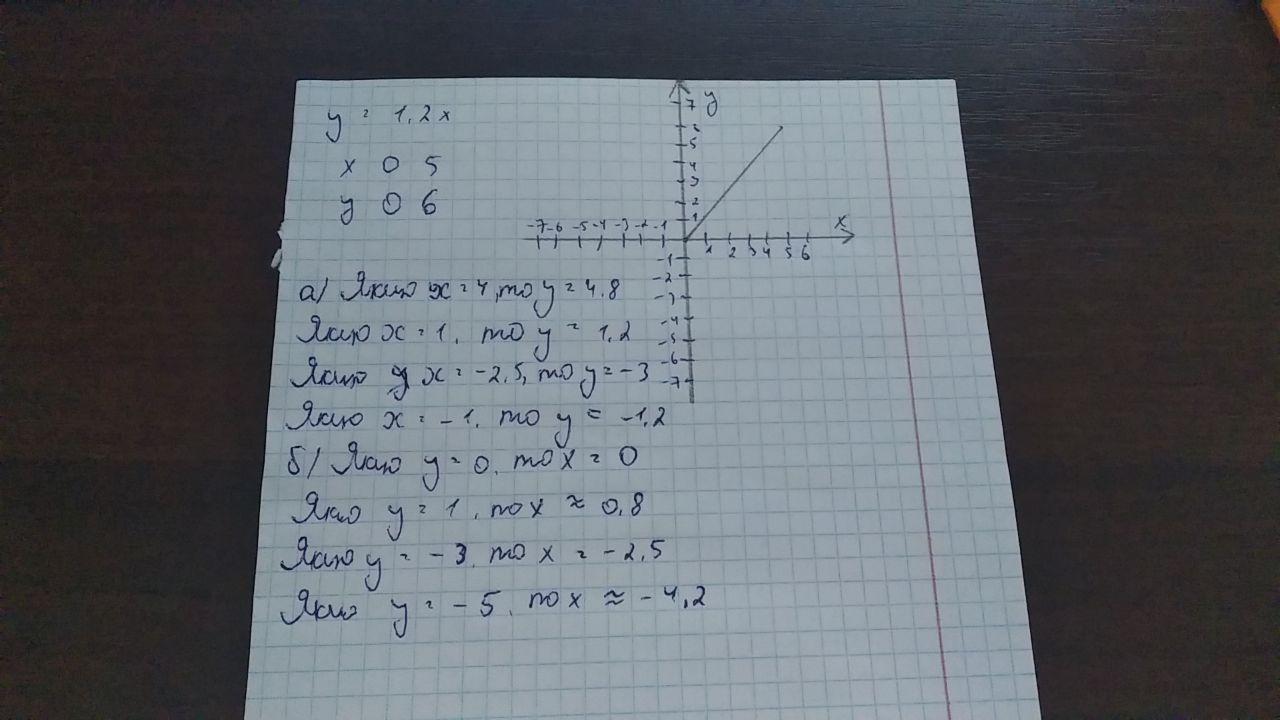 y = 1,2x
x 0 5
y 0 6
а) Якщо x = 4, то y = 4.8
Якщо x = 1, то y = 1,2
Якщо x = -2,5, то y = -3
Якщо x = -1, то y = -1,2
б) Якщо y = 0, то x = 0
Якщо y = 1, то x ≈ 0,8
Якщо y = -3, то x = -2,5
Якщо y = -5, то x ≈ -4,2
y
7
6
5
4
3
2
1
-7 -6 -5 -4 -3 -2 -1
x
1 2 3 4 5 6
-1
-2
-3
-4
-5
-6
-7